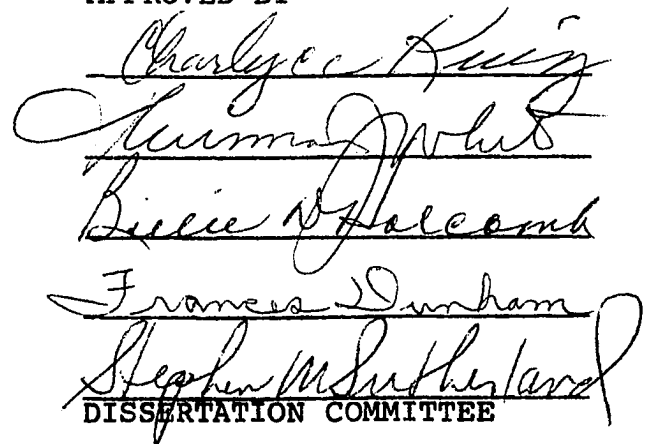 APPROVED BY
Charlyce King
Thurman J White
Billie D Holcomb
Frances Dunham
Stephen M Sutherland
DISSERTATION COMMITTEE